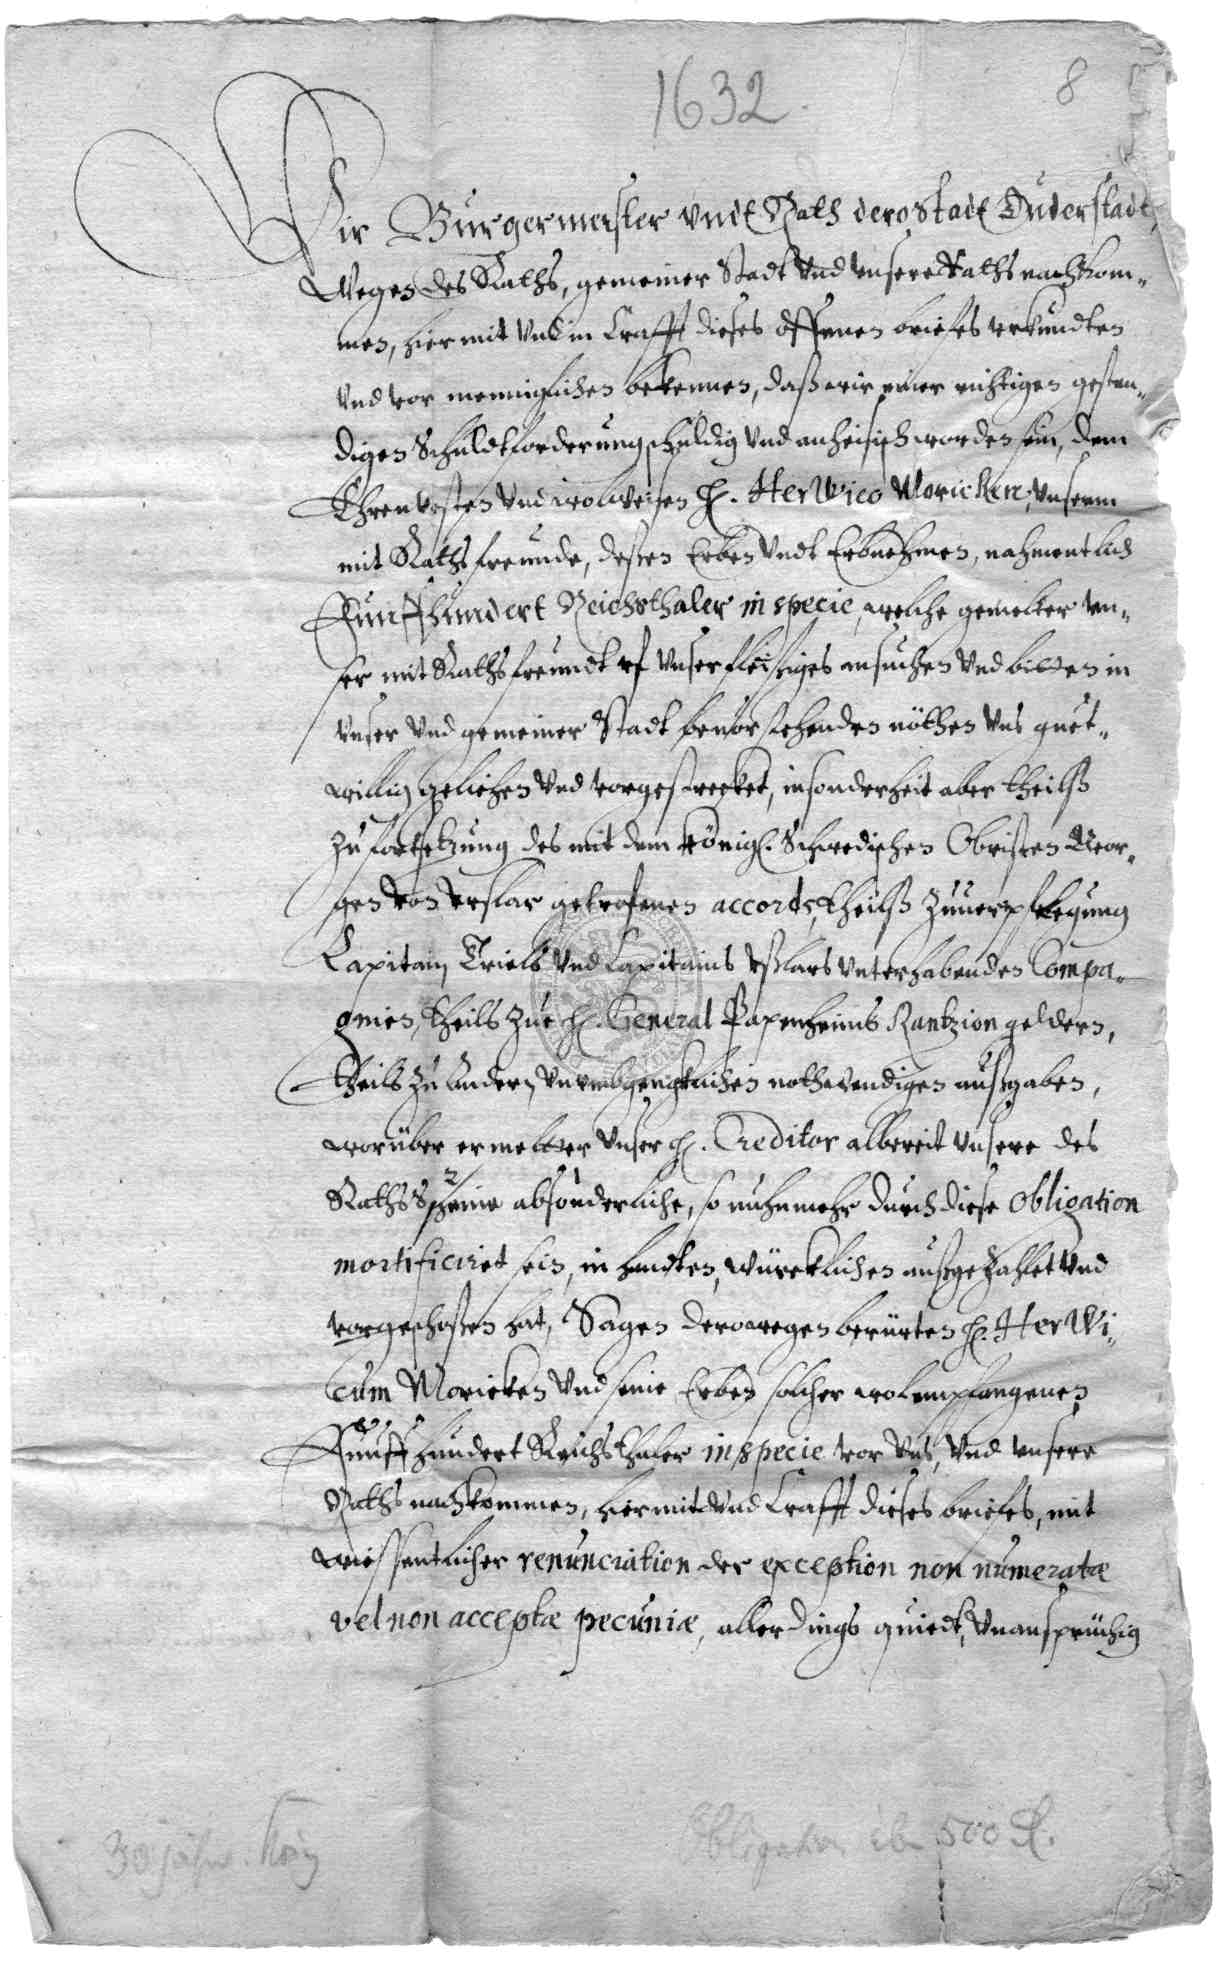 1632
8
Wir Burgermeister vndt Rath dero Stadt Duderstadt,
Wegen des Raths, gemeiner Stadt vnd vnsere Raths nachkom-
men, hiermit vnd in Crafft dieses offenen briefes vrkundten
vnd vor menniglichen bekennen, daß wir einer richtigen gesten-
digen Schuldtforderung schuldig vnd anheisich worden sein, dem
Ehrenvesten vnd wolweisen H. Herwico Moricken, vnserm
mit Raths freunde, deßen Erben vndt Erbnehmen, nahmentlich
Funffhundert Reichsthaler in specie, welche gemelter vn-
ser mit Raths freundt vf vnser fleißiges ansuchen vnd bitten in
vnser vnd gemeiner Stadt beuorstehenden nöthen vns guet-
willig geliehen vnd vorgestrecket, insonderheit aber theilß
zu fortsetzung des mit dem Königl. Schwedischen Obristen Geor-
gen von Vslar getrofenen accords, theilß zuuerpflegung
Capitain Triels vnd Capitains Vßlars vnterhabenden Compa-
gnien, theils zue H. General Papenheims Rantzion geldern,
theils zu andern vnvmbgenglichen nothwendigen außgaben,
worüber ermelter vnser H. Creditor albereit vnsere des
Raths 2 Scheine absonderliche, so nuhnmehr durch diese obligation
mortificiret sein, in handten, würcklichen außgezahlet vnd
vorgeschoßen hat, Sagen derowegen berürten H. Herwi-
cum Moricken vnd seine Erben solcher wolempfangenen
Funff hundert Reichsthaler in specie vor vns, vnd vnsere
Raths nachkommen, hiermit vnd Crafft dieses briefes, mit
wissentlicher renunciation der exception non numeratæ
vel non acceptæ pecuniæ, allerdings quiedt, vnansprüchig
30 jähr. Krieg
Obligation über 500 Rt.